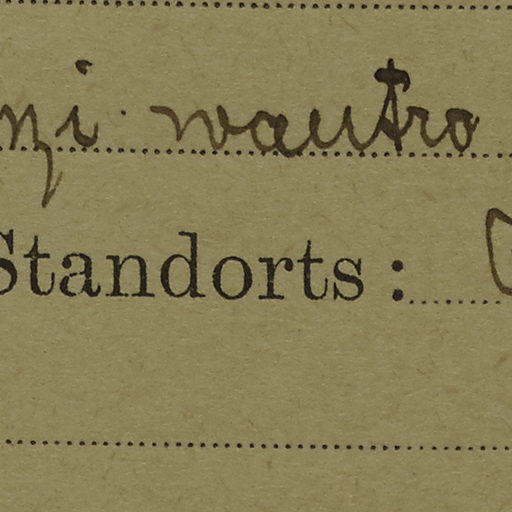 nzi wautro
Standorts: